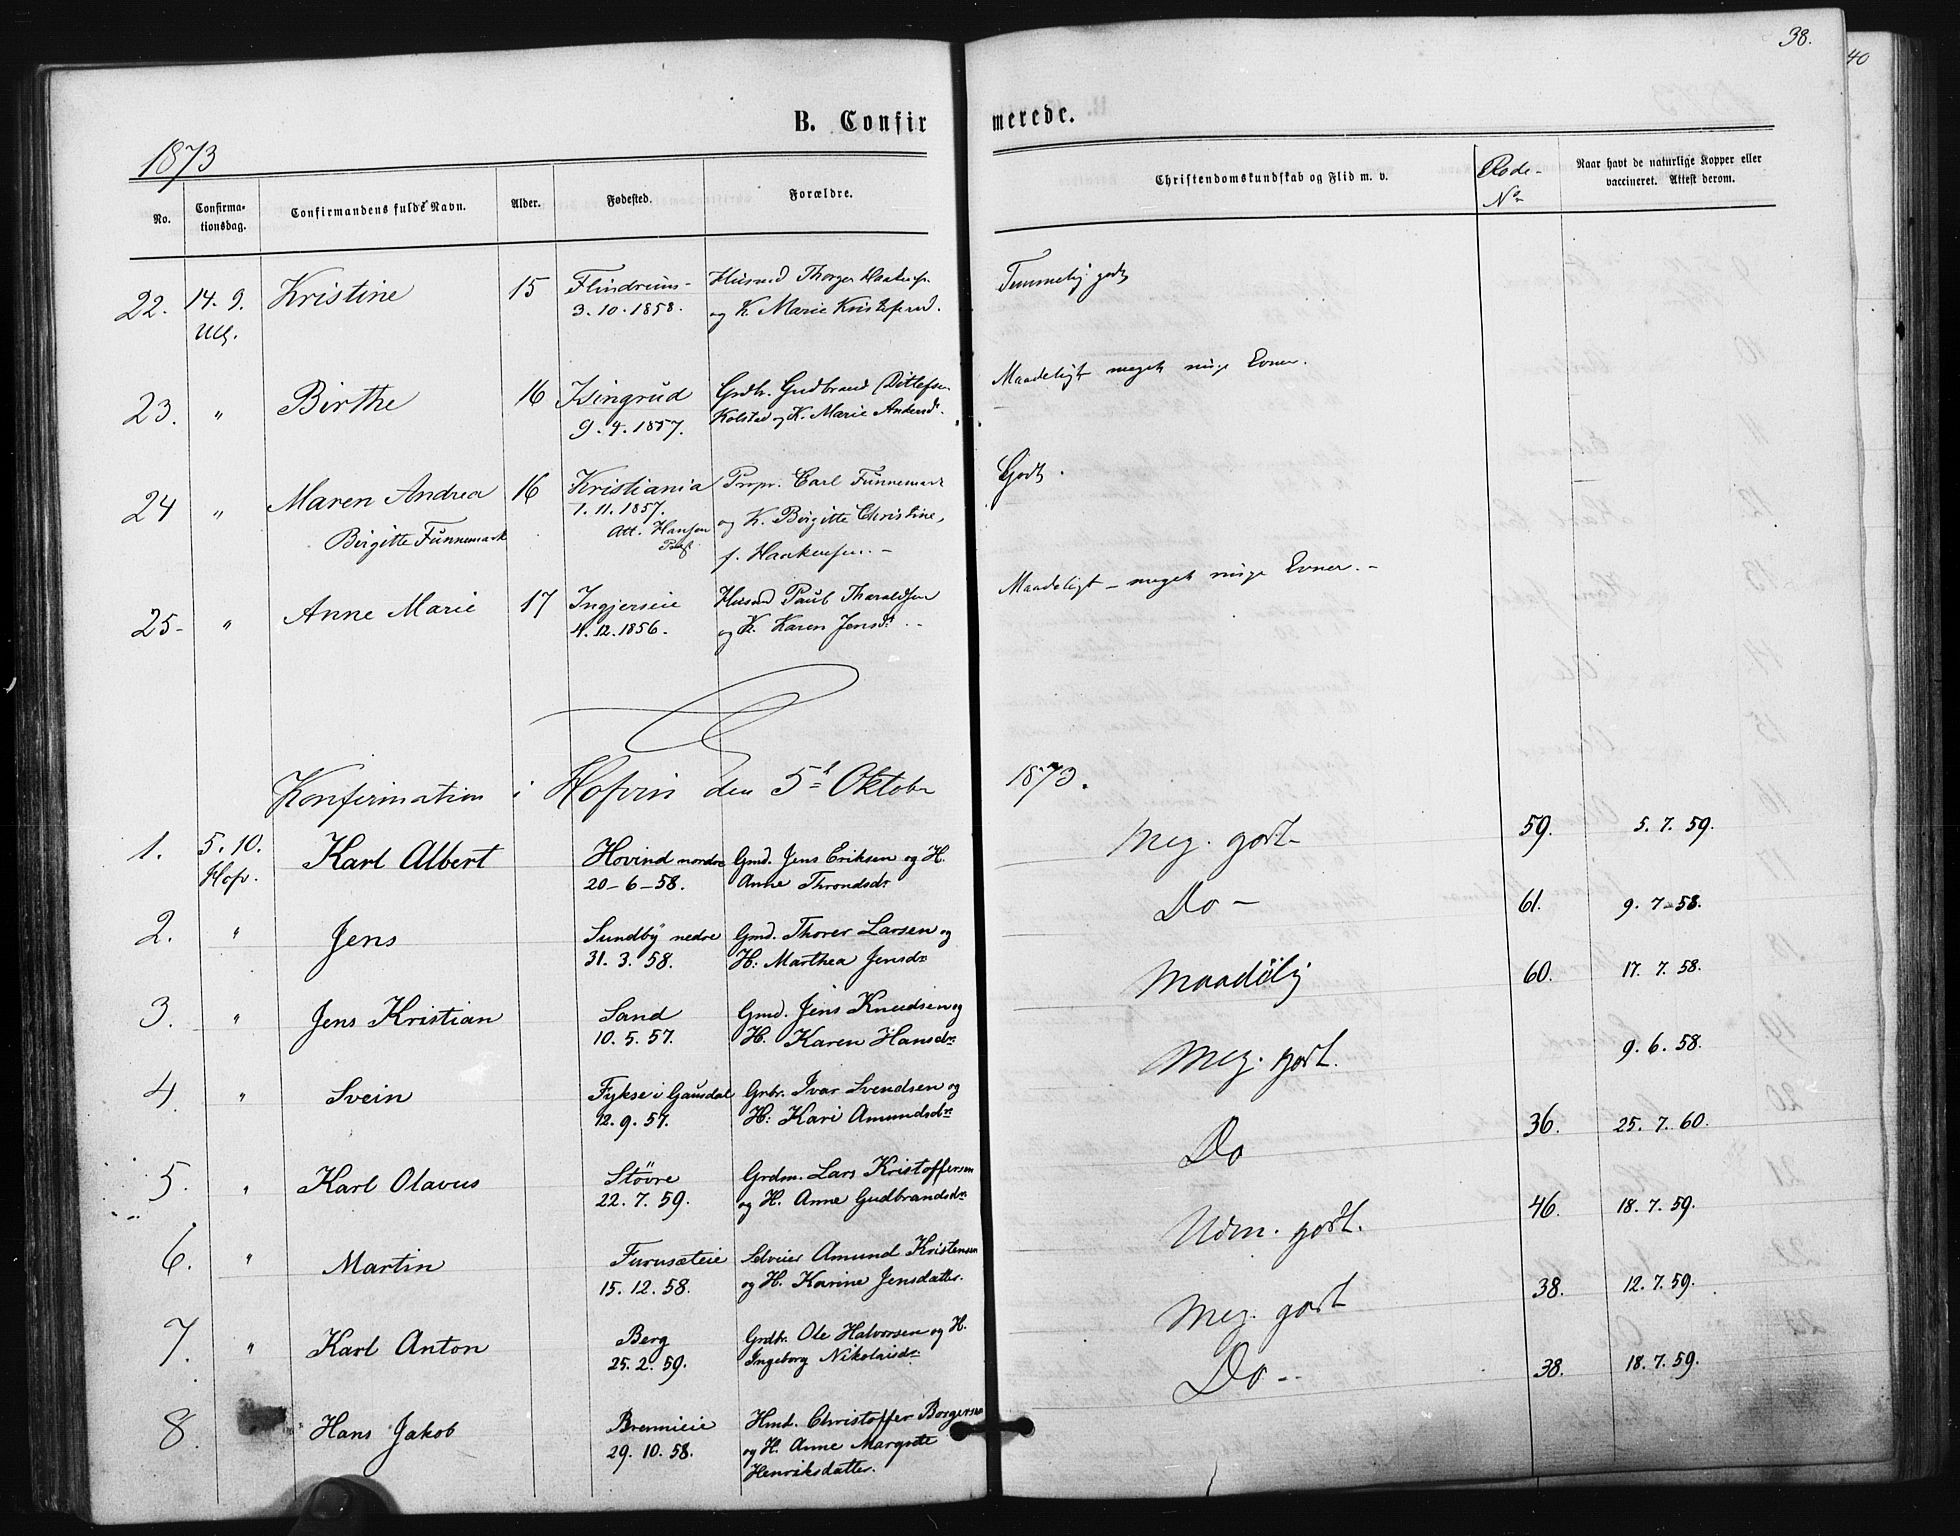 38.
40
B. Confirmerede.
1873
No. Confirma-tionsdag. Confirmandens fulde Navn. Alder. Fødested. Forældre. Christendomskundskab og Flid m. v. Rode-No Naar havt de naturlige Kopper eller vaccineret. Attest derom.
22. 14. 9. Kristine 15 Flindrums- Husmd Thorger Haakens. Temmelig godt
Ull. 3. 10. 1858. og K. Marie Kristofersd.
23. " Birthe 16 Isingrud Grdbr. Gudbrand Ditlefsen Maadeligt meget ringe Evner.
9. 4. 1857. Kolstad og K. Marie Andersdr.
24 " Maren Andrea 16 Kristiania Propr. Carl Funnemark Godt.
Birgitte Funnemark 1. 11. 1857. og K. Birgitte Christine,
Att. Hansen f. Haakensen. –
25- " Anne Marie 17 Ingierseie Husmd Paul Tharaldsen Maadeligt – meget ringe Evner. –
4. 12. 1856. og K. Karen Jensdr. –
Konfirmation i Hofvin den 5t Oktobr 1873.
1. 5. 10. Karl Albert Hovind nordre Gmd. Jens Eriksen og H. Meg. godt 59. 5. 7. 59.
Hofv. 20-6-58. Anne Throndsdr
2. " Jens Sundby nedre Gmd. Thorer Larsen og Do – 61. 9. 7-58.
31. 3. 58. H: Marthea Jensdr
3. " Jens Kristian Sand Gmd. Jens Knudsen og Maadelig 60. 17. 7. 58.
10. 5. 57. H. Karen Hansdr
4. " Svein Fykse i Gausdal Grbr. Ivar Svendsen og Meg. godt. 9. 6. 58.
12. 9. 57. H: Kari Amundsdr
5. " Karl Olavus Støvre Grdm. Lars Kristoffersen Do 36. 25. 7. 60.
22. 7. 59. og H. Anne Gudbrandsdr
6. " Martin Furusæteie Selveier Amund Kristensen Udm. godt. 46. 18. 7. 59.
15. 12. 58. og H. Karine Jensdatter.
7. " Karl Anton Berg Grdbr. Ole Halvorsen og H. Meg. godt 38. 12. 7. 59.
25. 2. 59. Ingeborg Nikolaisdr
8. Hans Jakob Brennieie Hmd. Christoffer Borgersen Do – 38. 18. 7. 59.
29. 10. 58. og H. Anne Margrete
Henriksdatter.